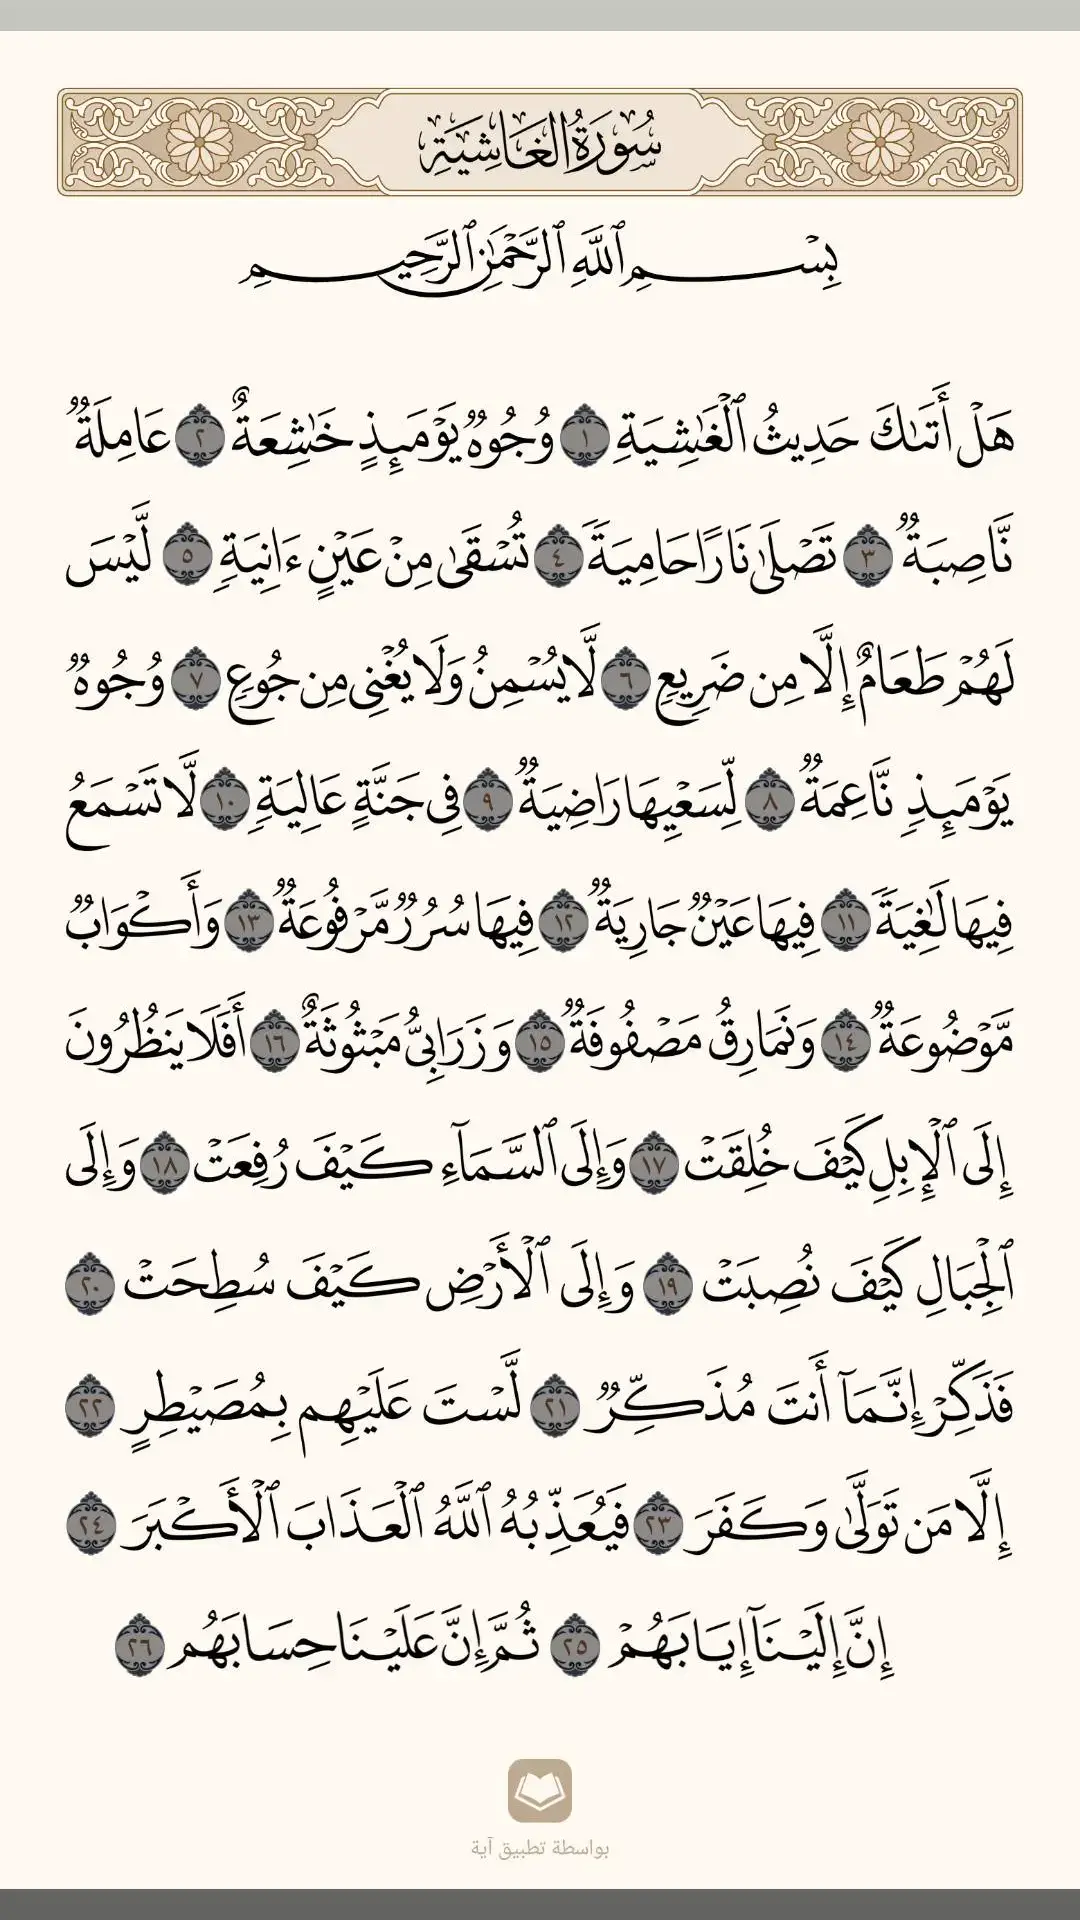 سُورَةُ الغَاشِيَةِ
بِسْمِ ٱللَّهِ ٱلرَّحْمَٰنِ ٱلرَّحِيمِ
هَلْ أَتَىٰكَ حَدِيثُ ٱلْغَٰشِيَةِ ١ وُجُوهٌ يَوْمَئِذٍ خَٰشِعَةٌ ٢ عَامِلَةٌ
نَّاصِبَةٌ ٣ تَصْلَىٰ نَارًا حَامِيَةً ٤ تُسْقَىٰ مِنْ عَيْنٍ ءَانِيَةٍ ٥ لَّيْسَ
لَهُمْ طَعَامٌ إِلَّا مِن ضَرِيعٍ ٦ لَّا يُسْمِنُ وَلَا يُغْنِى مِن جُوعٍ ٧ وُجُوهٌ
يَوْمَئِذٍ نَّاعِمَةٌ ٨ لِّسَعْيِهَا رَاضِيَةٌ ٩ فِى جَنَّةٍ عَالِيَةٍ ١٠ لَّا تَسْمَعُ
فِيهَا لَٰغِيَةً ١١ فِيهَا عَيْنٌ جَارِيَةٌ ١٢ فِيهَا سُرُرٌ مَّرْفُوعَةٌ ١٣ وَأَكْوَابٌ
مَّوْضُوعَةٌ ١٤ وَنَمَارِقُ مَصْفُوفَةٌ ١٥ وَزَرَابِىُّ مَبْثُوثَةٌ ١٦ أَفَلَا يَنظُرُونَ
إِلَى ٱلْإِبِلِ كَيْفَ خُلِقَتْ ١٧ وَإِلَى ٱلسَّمَآءِ كَيْفَ رُفِعَتْ ١٨ وَإِلَى
ٱلْجِبَالِ كَيْفَ نُصِبَتْ ١٩ وَإِلَى ٱلْأَرْضِ كَيْفَ سُطِحَتْ ٢٠
فَذَكِّرْ إِنَّمَآ أَنتَ مُذَكِّرٌ ٢١ لَّسْتَ عَلَيْهِم بِمُصَيْطِرٍ ٢٢
إِلَّا مَن تَوَلَّىٰ وَكَفَرَ ٢٣ فَيُعَذِّبُهُ ٱللَّهُ ٱلْعَذَابَ ٱلْأَكْبَرَ ٢٤
إِنَّ إِلَيْنَآ إِيَابَهُمْ ٢٥ ثُمَّ إِنَّ عَلَيْنَا حِسَابَهُم ٢٦
بواسطة تطبيق آية